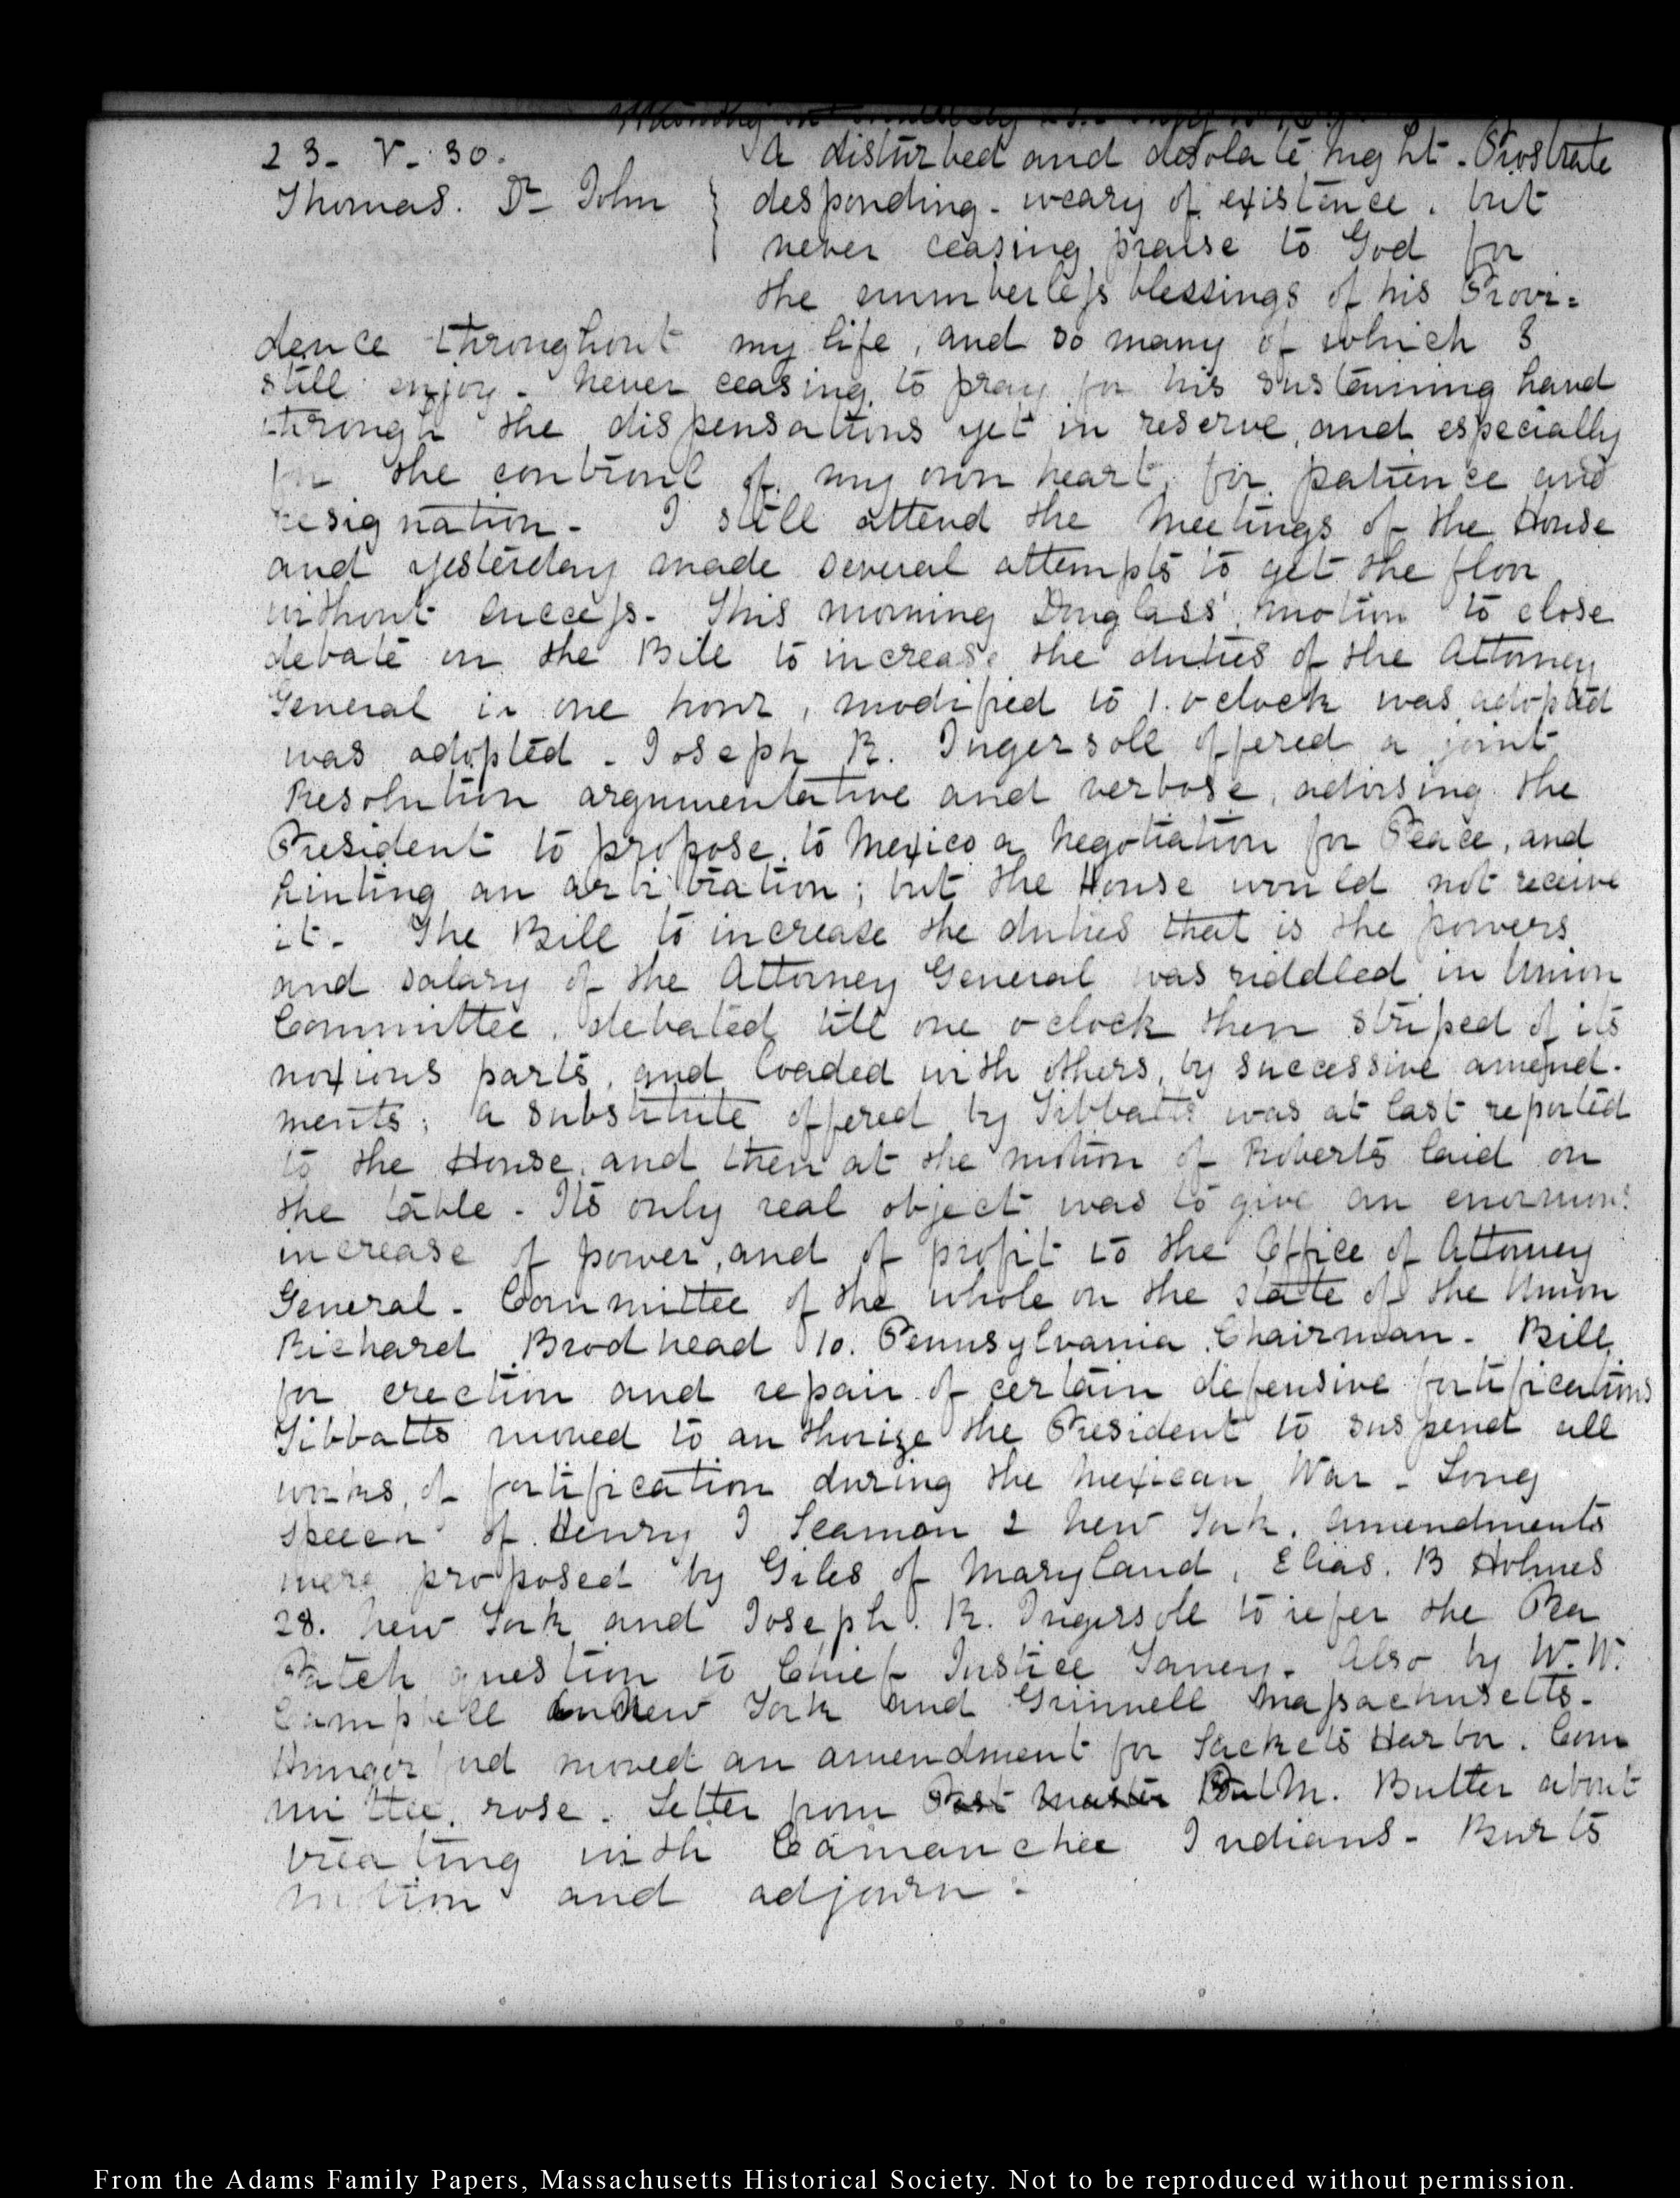 23. V. 30.
Thomas. Dr John
A disturbed and desolate night. Prostrate
desponding. weary of existence. but
never ceasing praise to God for
the numberless blessings of his Provi=
dence throughout my life, and so many of which I
still enjoy. Never ceasing to pray for his sustaining hand
through the dispensations yet in reserve, and especially
for the controul of my own heart, for patience and
resignation. I still attend the Meetings of the House
and yesterday made several attempts to get the floor
without success. This morning Douglass' motion to close
debate on the Bill to increase the duties of the Attorney
General in one hour, modified to 1. o clock was adopted
was adopted. Joseph R. Ingersoll offered a joint
Resolution argumentative and verbose, advising the
President to propose to Mexico a Negotiation for Peace, and
hinting an arbitration; but the House would not receive
it. The Bill to increase the duties that is the powers
and salary of the Attorney General was riddled in Union
Committee, debated till one o clock then striped of its
noxious parts, and loaded with others, by successive amend-
ments; a substitute offered by Tibbatts was at last reported
to the House, and then at the motion of Roberts laid on
the table. Its only real object was to give an enormous
increase of power, and of profit to the Office of Attorney
General. Committee of the whole on the state of the Union
Richard Brodhead 10. Pennsylvania Chairman. Bill
for erection and repair of certain defensive fortifications
Tibbatts moved to authorize the President to suspend all
works of fortification during the Mexican War. Long
speech of Henry I Seaman 2 New York. Amendments
were proposed by Giles of Maryland, Elias. B Holmes
28. New York and Joseph. R. Ingersoll to refer the Pea
Patch question to Chief Justice Taney. Also by W. W.
Campbell New York and Grinnell Massachusetts.
Hungerford moved an amendment for Sackets Harbor. Com
mittee rose. Letter from Post Master M. Butler about
treating with Camanchee Indians. Burts
motion and adjourn.
From the Adams Family Papers, Massachusetts Historical Society. Not to be reproduced without permission.